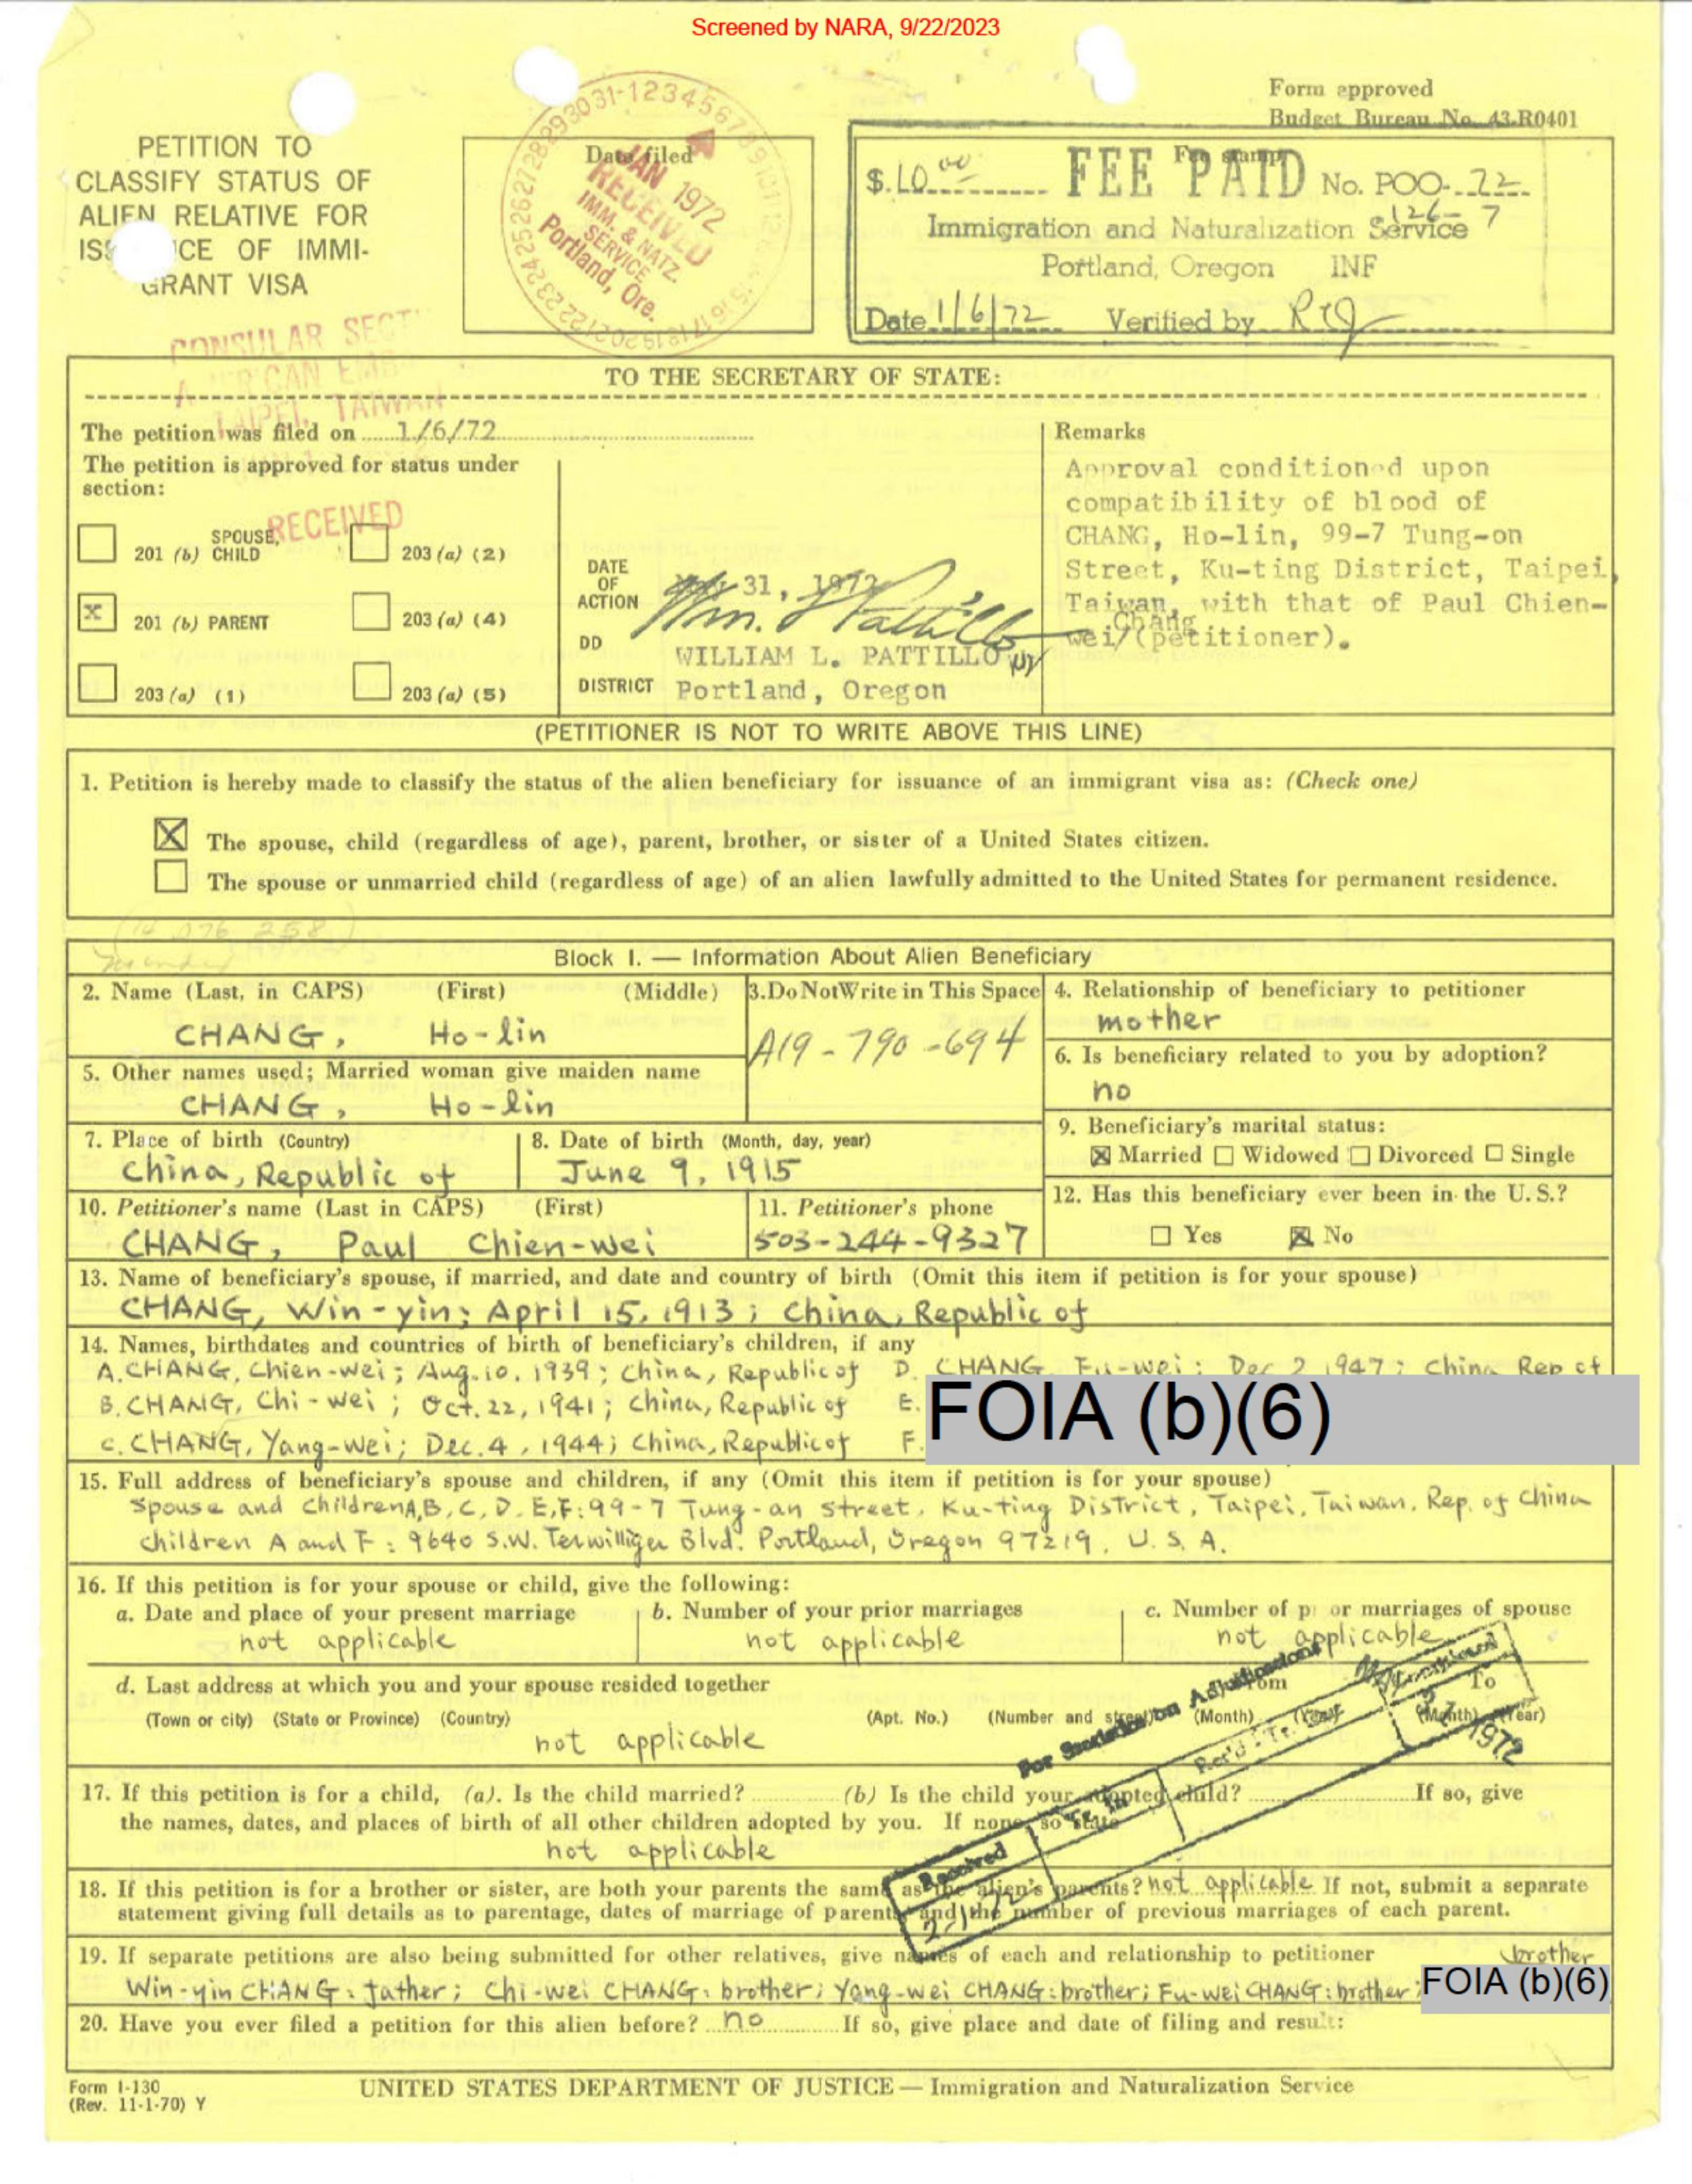 Screened by NARA, 9/22/2023
Form approved
Budget Bureau No. 43-R0401
PETITION TO
CLASSIFY STATUS OF
ALIEN RELATIVE FOR
ISS CE OF IMMI-
GRANT VISA
Date filed
JAN 1972
RECEIVED
IMM. & NATZ.
SERVICE
Portland, Ore.
Fee stamp
$.10.00 FEE PAID No. POO-72
126-7
Immigration and Naturalization Service
Portland, Oregon INF
Date 1/6/72 Verified by
CONSULAR SECT
TAIPEI, TAIWAN
RECEIVED
TO THE SECRETARY OF STATE:
The petition was filed on 1/6/72
The petition is approved for status under
section:
201 (b) SPOUSE, CHILD
203 (a) (2)
x 201 (b) PARENT
203 (a) (4)
203 (a) (1)
203 (a) (5)
DATE OF ACTION 31, 1972
Wm. L Pattillo
DD WILLIAM L. PATTILLO
DISTRICT Portland, Oregon
Remarks
Approval conditioned upon
compatibility of blood of
CHANG, Ho-lin, 99-7 Tung-on
Street, Ku-ting District, Taipei,
Taiwan, with that of Paul Chien-
Chang
wei/(petitioner).
(PETITIONER IS NOT TO WRITE ABOVE THIS LINE)
1. Petition is hereby made to classify the status of the alien beneficiary for issuance of an immigrant visa as: (Check one)
X The spouse, child (regardless of age), parent, brother, or sister of a United States citizen.
The spouse or unmarried child (regardless of age) of an alien lawfully admitted to the United States for permanent residence.
Block I. — Information About Alien Beneficiary
2. Name (Last, in CAPS) (First) (Middle)
CHANG, Ho-lin
3.DoNotWrite in This Space
A19-790-694
4. Relationship of beneficiary to petitioner
mother
5. Other names used; Married woman give maiden name
CHANG, Ho-lin
6. Is beneficiary related to you by adoption?
no
7. Place of birth (Country)
China, Republic of
8. Date of birth (Month, day, year)
June 9, 1915
9. Beneficiary's marital status:
X Married Widowed Divorced Single
10. Petitioner's name (Last in CAPS) (First)
CHANG, Paul Chien-wei
11. Petitioner's phone
503-244-9327
12. Has this beneficiary ever been in the U.S.?
Yes X No
13. Name of beneficiary's spouse, if married, and date and country of birth (Omit this item if petition is for your spouse)
CHANG, Win-yin; April 15, 1913; China, Republic of
14. Names, birthdates and countries of birth of beneficiary's children, if any
A. CHANG, Chien-wei; Aug. 10, 1939; China, Republic of D. CHANG, Fu-wei; Dec 2, 1947; China Rep of
B. CHANG, Chi-wei; Oct. 22, 1941; China, Republic of E. FOIA (b)(6)
C. CHANG, Yang-wei; Dec. 4, 1944; China, Republic of F.
15. Full address of beneficiary's spouse and children, if any (Omit this item if petition is for your spouse)
Spouse and children A, B, C, D, E, F: 99-7 Tung-an Street, Ku-ting District, Taipei, Taiwan, Rep. of China
Children A and F: 9640 S.W. Terwilliger Blvd. Portland, Oregon 97219, U.S.A.
16. If this petition is for your spouse or child, give the following:
a. Date and place of your present marriage
not applicable
b. Number of your prior marriages
not applicable
c. Number of p or marriages of spouse
not applicable
d. Last address at which you and your spouse resided together From To
(Town or city) (State or Province) (Country) (Apt. No.) (Number and street) (Month) (Year) (Month) (Year)
not applicable
For Statistics on Adjudications
Received
31 1972
17. If this petition is for a child, (a). Is the child married? (b) Is the child your adopted child? If so, give
the names, dates, and places of birth of all other children adopted by you. If none, so state
not applicable
18. If this petition is for a brother or sister, are both your parents the same as the alien's parents? not applicable If not, submit a separate
statement giving full details as to parentage, dates of marriage of parents and the number of previous marriages of each parent.
19. If separate petitions are also being submitted for other relatives, give names of each and relationship to petitioner brother
Win-yin CHANG: father; Chi-wei CHANG: brother; Yang-wei CHANG: brother; Fu-wei CHANG: brother; FOIA (b)(6)
20. Have you ever filed a petition for this alien before? no If so, give place and date of filing and result:
Form I-130
(Rev. 11-1-70) Y
UNITED STATES DEPARTMENT OF JUSTICE — Immigration and Naturalization Service